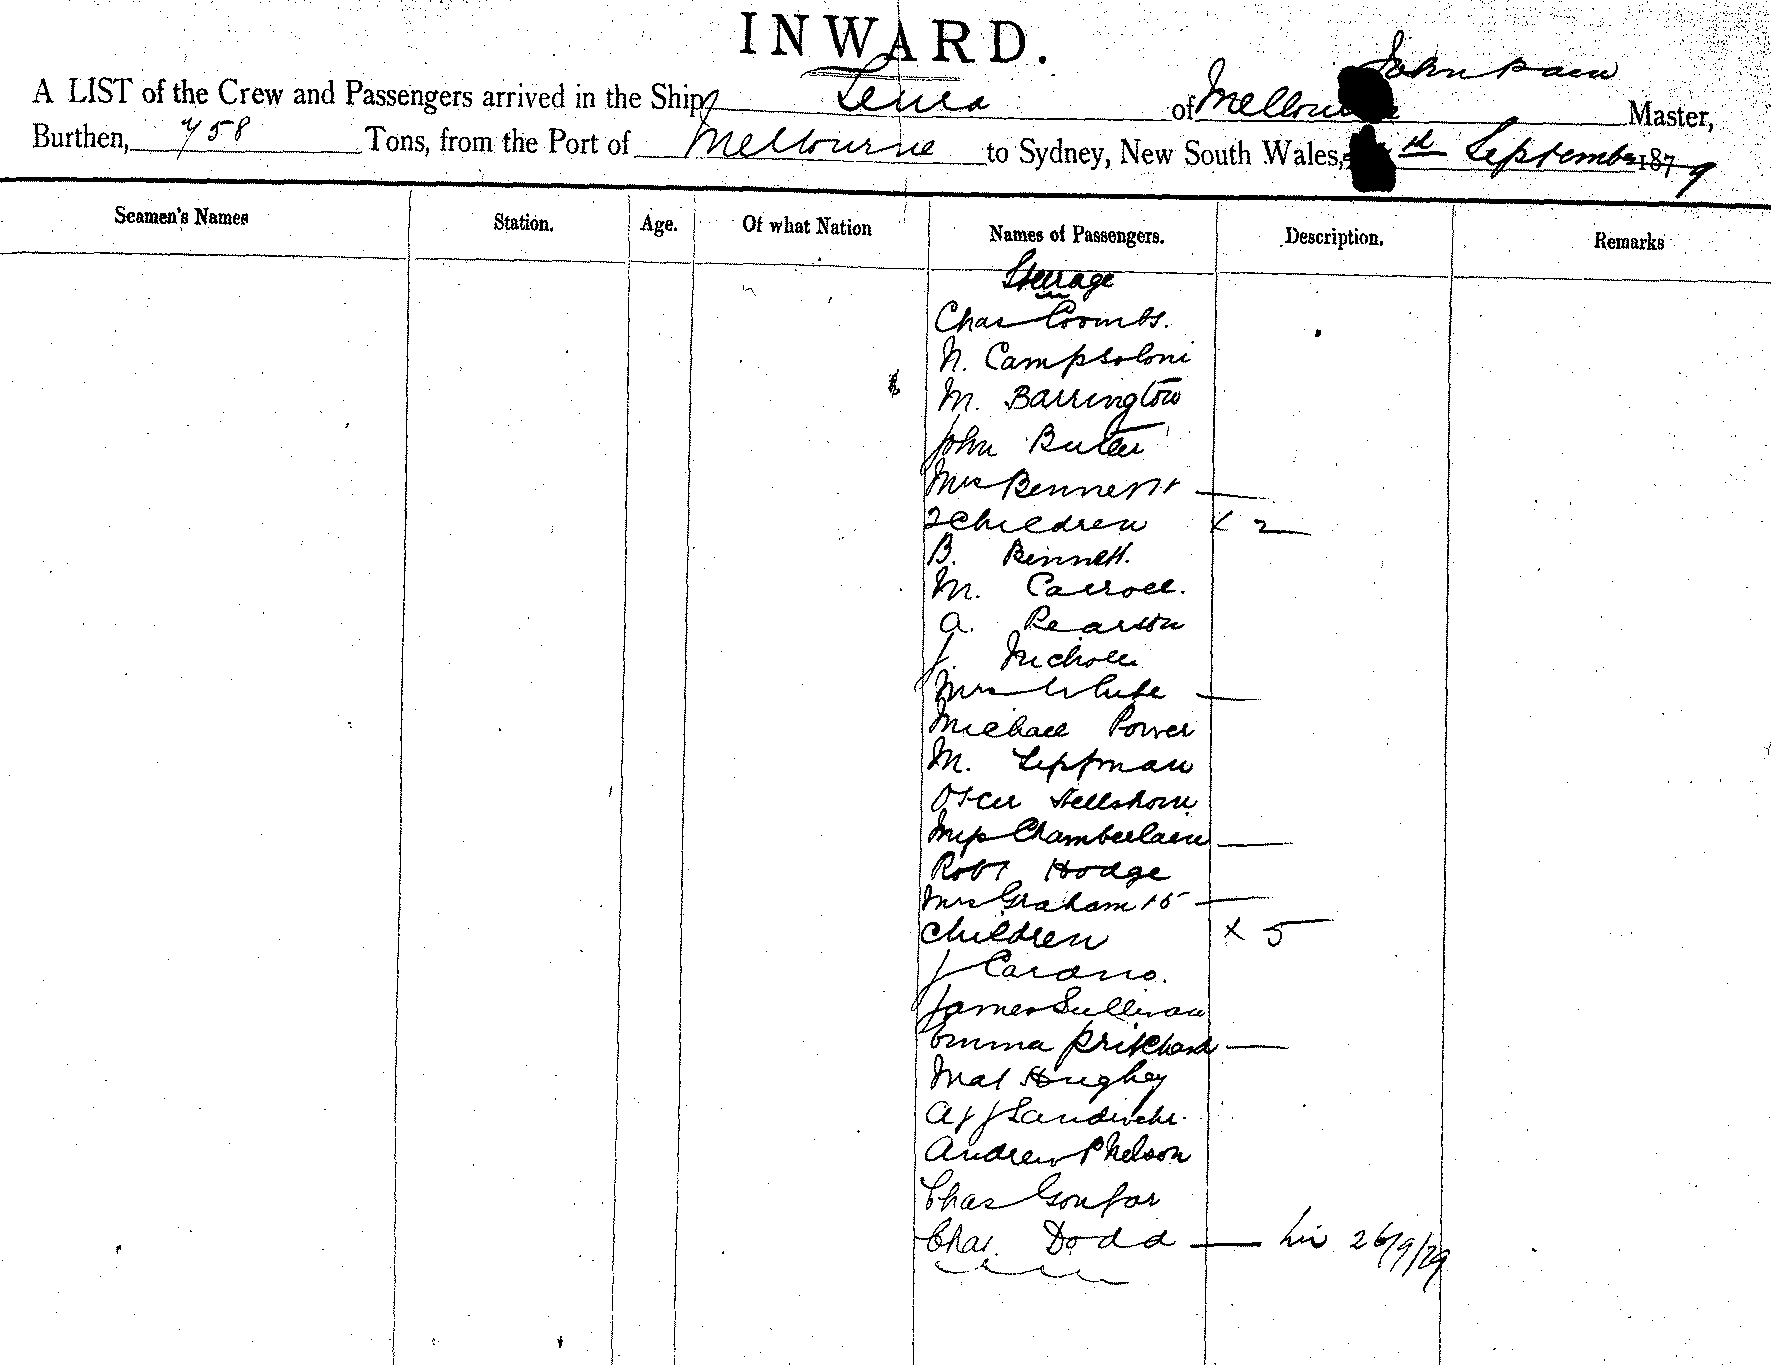 INWARD.
John
A LIST of the Crew and Passengers arrived in the Ship of Master,
Burthen, 758 Tons, from the Port of Melbourne to Sydney, New South Wales, September 1879
Seamen's Names Station. Age. Of what Nation Names of Passengers. Description. Remarks
Steerage
Chas Coombs.
N.
M. Barrington
John
Mrs Bennett —
2 Children x 2
B. Bennett.
M. Carroll.
A. Pearson
J. Nicholls
Mrs White —
Michael Power
M. Lippman
Miss Chamberlain —
Robt Hodge
Mrs Graham 15 —
Children x 5
J
James Sullivan
Emma Prichard —
Mat Hughey
Andrew P Nelson
Chas
Chas. Dodd — 26/9/79